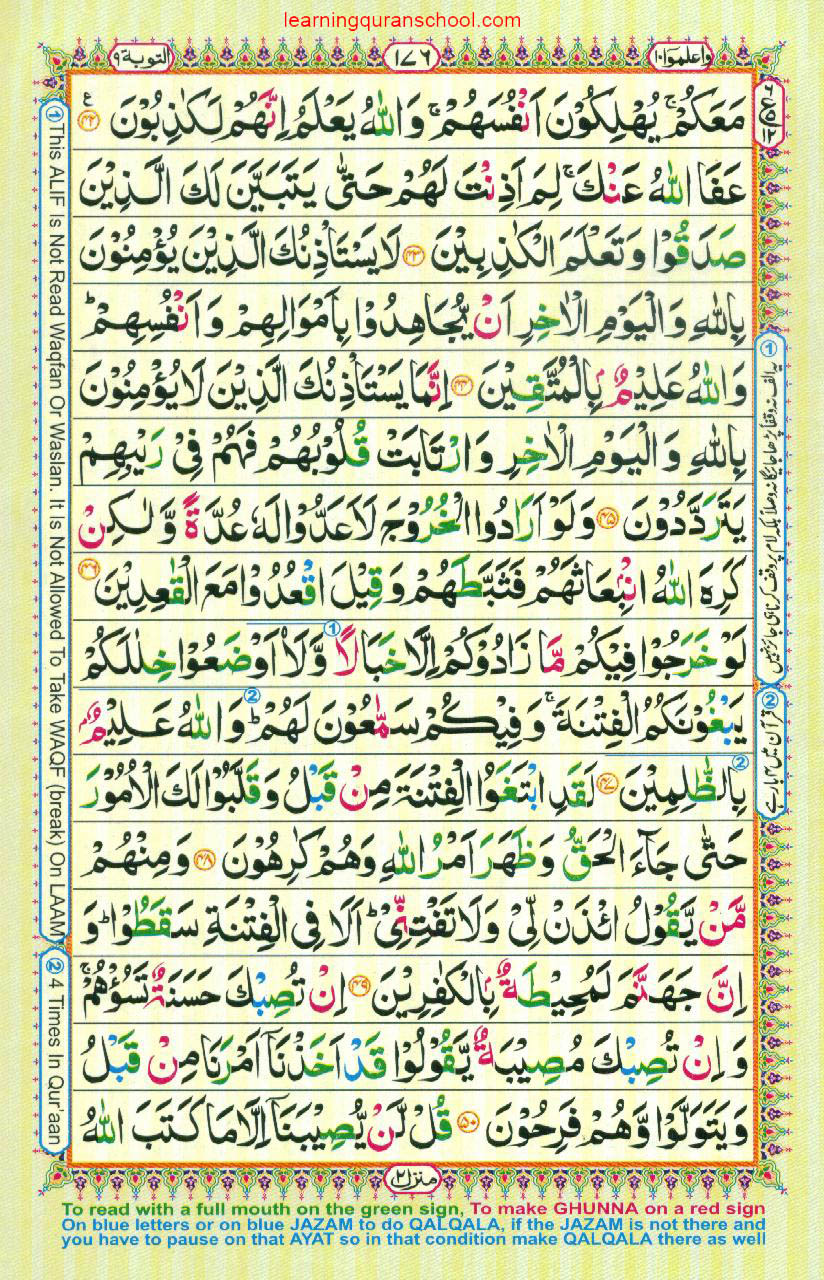 learningquranschool.com
واعلموا ١٠
١٧٦
التوبة ٩
مَعَكُمْ ۚ يُهْلِكُوْنَ اَنْفُسَهُمْ ۚ وَاللّٰهُ يَعْلَمُ اِنَّهُمْ لَكٰذِبُوْنَ ﴿۴۲﴾ ع
عَفَا اللّٰهُ عَنْكَ ۚ لِمَ اَذِنْتَ لَهُمْ حَتّٰى يَتَبَيَّنَ لَكَ الَّذِيْنَ
صَدَقُوْا وَتَعْلَمَ الْكٰذِبِيْنَ ﴿۴۳﴾ لَا يَسْتَاْذِنُكَ الَّذِيْنَ يُؤْمِنُوْنَ
بِاللّٰهِ وَالْيَوْمِ الْاٰخِرِ اَنْ يُّجَاهِدُوْا بِاَمْوَالِهِمْ وَاَنْفُسِهِمْ ؕ
وَاللّٰهُ عَلِيْمٌۢ بِالْمُتَّقِيْنَ ﴿۴۴﴾ اِنَّمَا يَسْتَاْذِنُكَ الَّذِيْنَ لَا يُؤْمِنُوْنَ
بِاللّٰهِ وَالْيَوْمِ الْاٰخِرِ وَارْتَابَتْ قُلُوْبُهُمْ فَهُمْ فِيْ رَيْبِهِمْ
يَتَرَدَّدُوْنَ ﴿۴۵﴾ وَلَوْ اَرَادُوا الْخُرُوْجَ لَاَعَدُّوْا لَهٗ عُدَّةً وَّلٰكِنْ
كَرِهَ اللّٰهُ انْۢبِعَاثَهُمْ فَثَبَّطَهُمْ وَقِيْلَ اقْعُدُوْا مَعَ الْقٰعِدِيْنَ ﴿۴۶﴾
لَوْ خَرَجُوْا فِيْكُمْ مَّا زَادُوْكُمْ اِلَّا خَبَالًا وَّلَا۟اَوْضَعُوْا خِلٰلَكُمْ
يَبْغُوْنَكُمُ الْفِتْنَةَ ۚ وَفِيْكُمْ سَمّٰعُوْنَ لَهُمْ ؕ وَاللّٰهُ عَلِيْمٌۢ
بِالظّٰلِمِيْنَ ﴿۴۷﴾ لَقَدِ ابْتَغَوُا الْفِتْنَةَ مِنْ قَبْلُ وَقَلَّبُوْا لَكَ الْاُمُوْرَ
حَتّٰى جَآءَ الْحَقُّ وَظَهَرَ اَمْرُ اللّٰهِ وَهُمْ كٰرِهُوْنَ ﴿۴۸﴾ وَمِنْهُمْ
مَّنْ يَّقُوْلُ ائْذَنْ لِّيْ وَلَا تَفْتِنِّيْ ؕ اَلَا فِي الْفِتْنَةِ سَقَطُوْا ؕ وَ
اِنَّ جَهَنَّمَ لَمُحِيْطَةٌۢ بِالْكٰفِرِيْنَ ﴿۴۹﴾ اِنْ تُصِبْكَ حَسَنَةٌ تَسُؤْهُمْ ۚ
وَاِنْ تُصِبْكَ مُصِيْبَةٌ يَّقُوْلُوْا قَدْ اَخَذْنَاۤ اَمْرَنَا مِنْ قَبْلُ
وَيَتَوَلَّوْا وَّهُمْ فَرِحُوْنَ ﴿۵۰﴾ قُلْ لَّنْ يُّصِيْبَنَاۤ اِلَّا مَا كَتَبَ اللّٰهُ
① یہ الف نہ وقفاً پڑھا جائیگا نہ وصلاً بلکہ لام پر وقف کرنا ہی جائز نہیں
② قرآن میں ۴ بار ہے
① This ALIF Is Not Read Waqfan Or Waslan. It Is Not Allowed To Take WAQF (break) On LAAM
② 4 Times In Qur'aan
منزل ٢
To read with a full mouth on the green sign, To make GHUNNA on a red sign
On blue letters or on blue JAZAM to do QALQALA, if the JAZAM is not there and
you have to pause on that AYAT so in that condition make QALQALA there as well